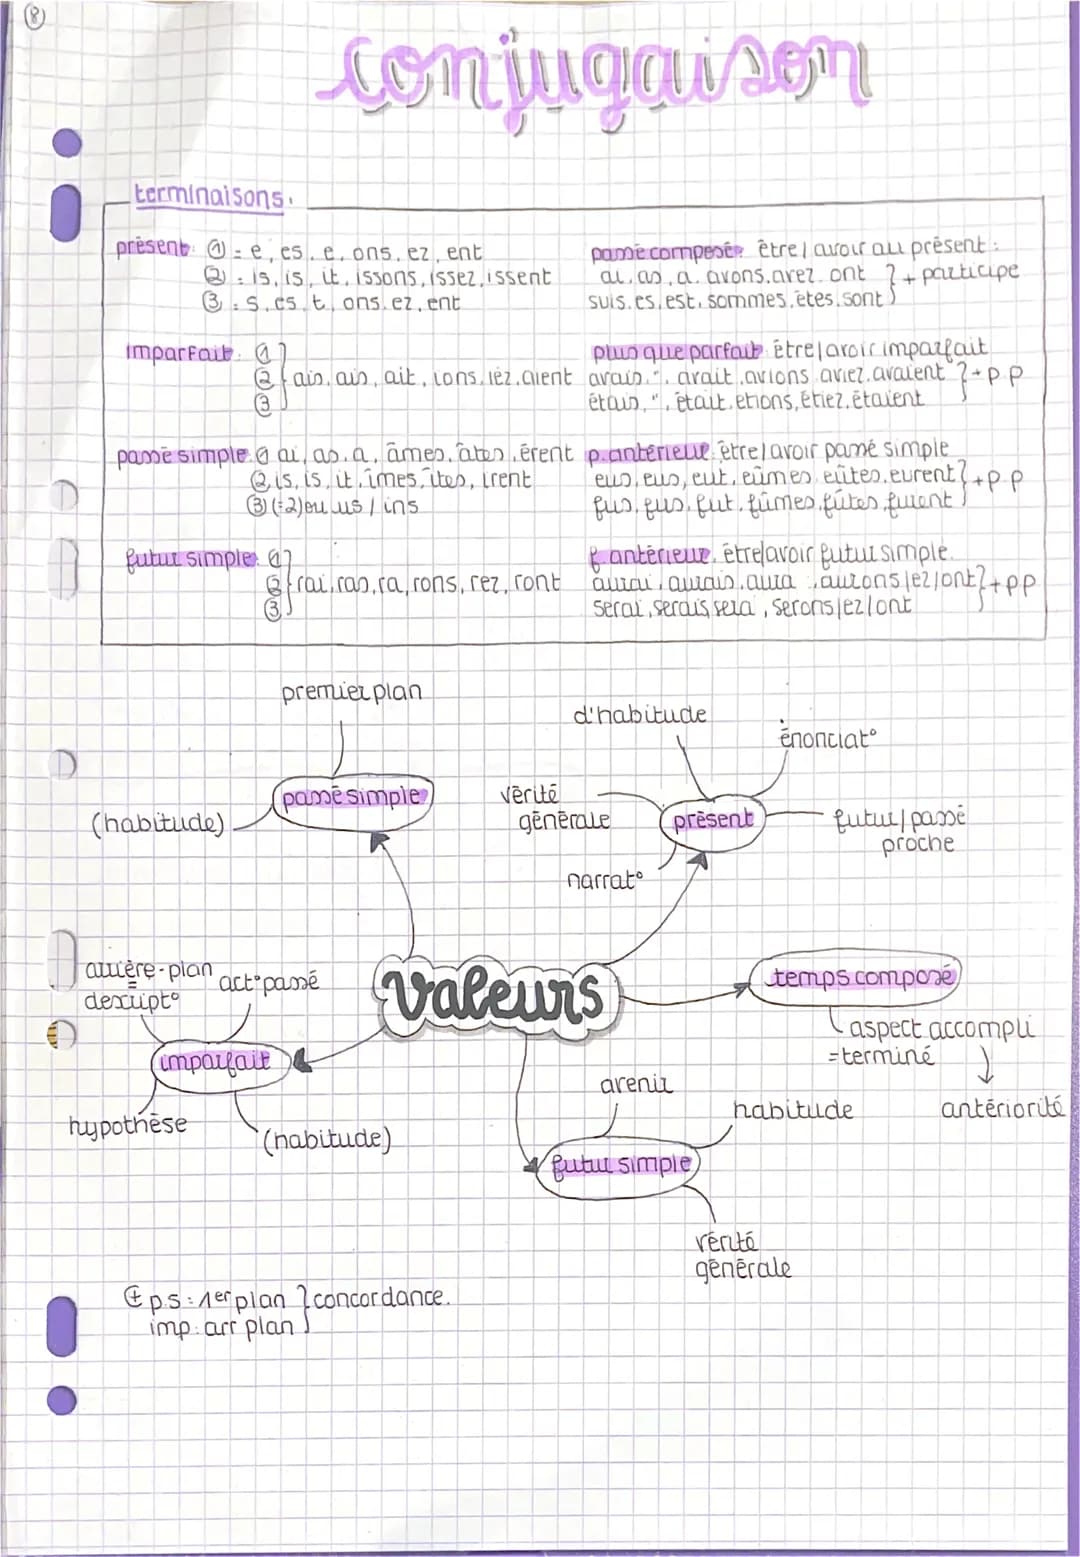 8
conjugaison
terminaisons.
présent: ① = e, es, e, ons, ez, ent
② : is, is, it, issons, issez, issent
③ : s, es, t, ons, ez, ent
imparfait: ①
② } ais, ais, ait, ions, iez, aient
③
passé simple: ① ai, as, a, âmes, âtes, èrent
② is, is, it, îmes, îtes, irent
③ (=2) ou us / ins
futur simple: ①
② } rai, ras, ra, rons, rez, ront
③
passé composé: être / avoir au présent :
ai, as, a, avons, avez, ont } + participe
suis, es, est, sommes, êtes, sont
plus que parfait: être/avoir imparfait
avais, ", avait, avions, aviez, avaient } + p.p
étais, ", était, etions, étiez, étaient
p. antérieur: être/avoir passé simple
eus, eus, eut, eûmes, eûtes, eurent } + p.p
fus, fus, fut, fûmes, fûtes, furent
f. antérieur: être/avoir futur simple.
aurai, aurais, aura, aurons/ez/ont } + pp
serai, serais, sera, serons/ez/ont
premier plan
passé simple
(habitude)
d'habitude
énonciat°
vérité
générale
présent
futur/passé
proche
narrat°
Valeurs
arrière-plan
descript°
act° passé
imparfait
hypothèse
(habitude)
temps composé
aspect accompli
= terminé
antériorité
avenir
habitude
futur simple
vérité
générale
⊕ p.s : 1er plan } concordance.
imp: arr plan